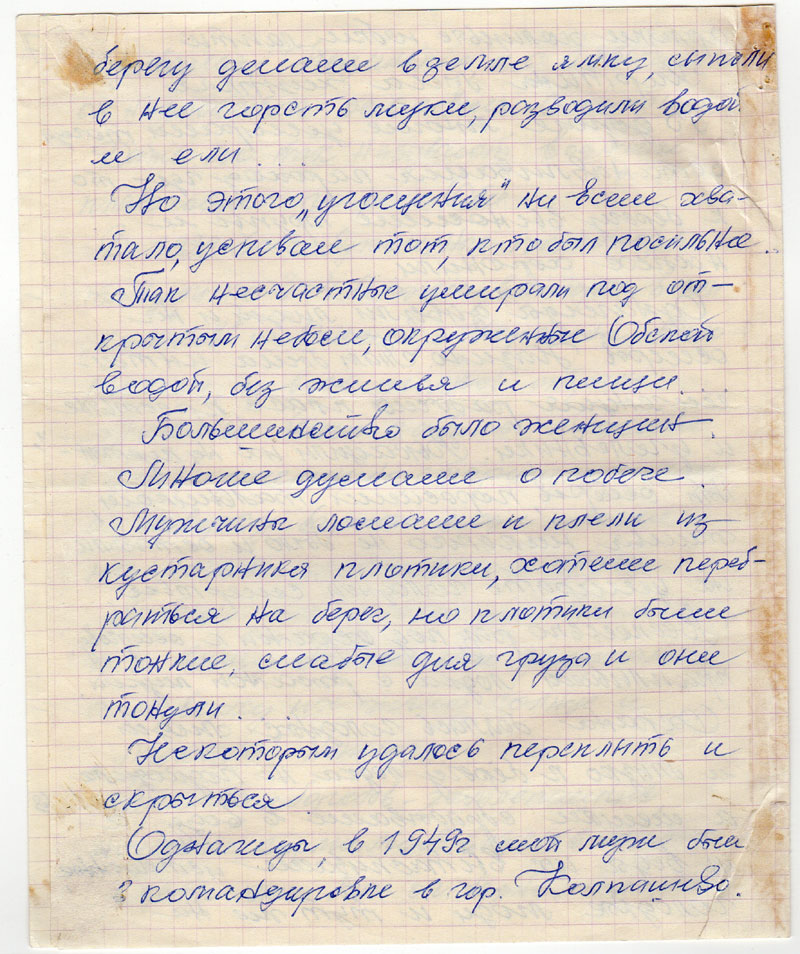 берегу делали в земле ямку, сыпали
в нее горсть муки, разводили водой
и ели...
Но этого „угощения" не всем хва-
тало, успевал тот, кто был посильнее.
Так несчастные умирали под от-
крытым небом, окруженные Обской
водой, без жилья и пищи...
Большинство было женщин.
Многие думали о побеге.
Мужчины ломали и плели из
кустарника плотики, хотели переб-
раться на берег, но плотики были
тонкие, слабые для груза и они
тонули...
Некоторым удалось переплыть и
скрыться.
Однажды, в 1949г мой муж был
в командировке в гор. Колпашево.